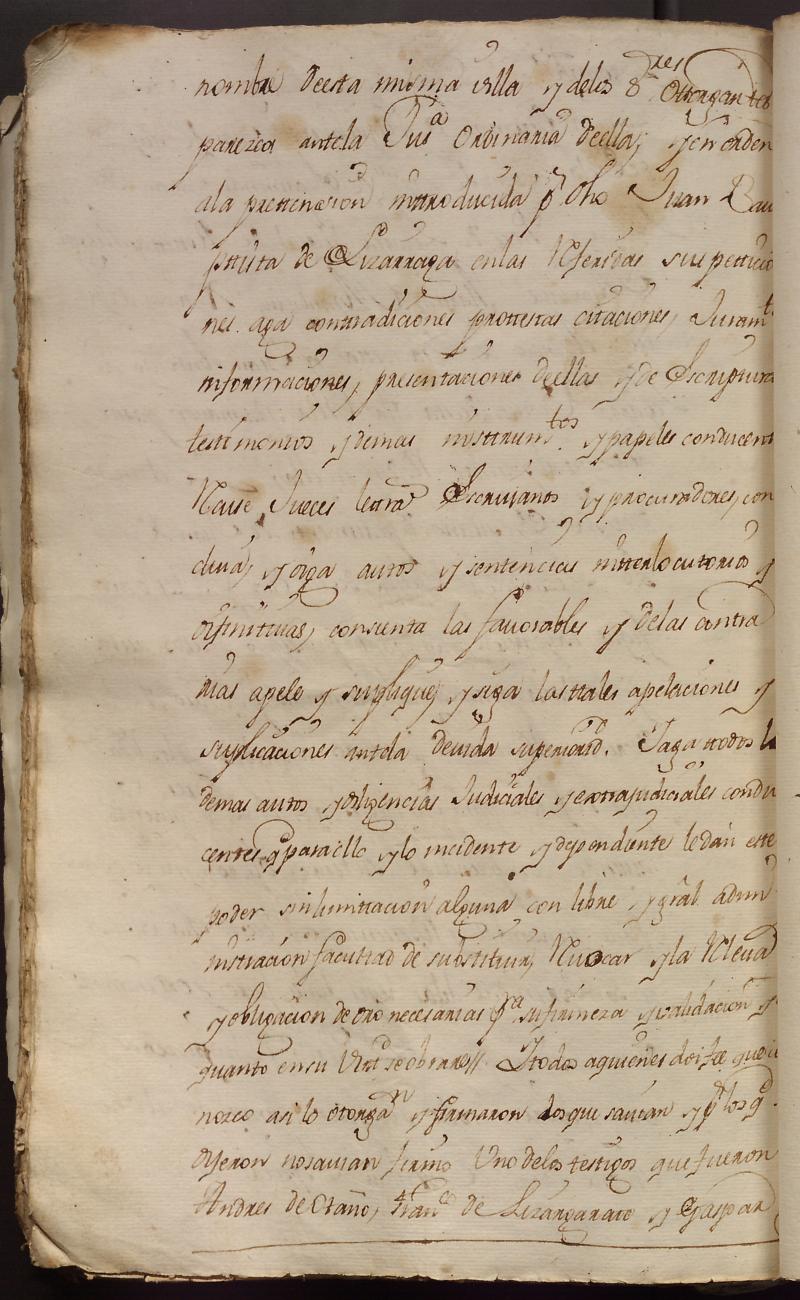 nombre deesta misma villa y delos Sres Otorgantes
parezca antela Jusa Ordinaria deella, y en orden
ala pretension introducida pr dho Juan Bau
ptista de Lizarraga enlas Referidas sus peticio
nes. aga contradiciones protestas citaciones, Juramtos
informaciones, presentaciones deellas y de Escriptura
testimonios y demas instrumtos y papeles conducent
Recuse Jueces letrados Escrivanos y procuradores, con
cluia, y oiga autos y sentencias interlocutorias y
difinitivas, consienta las favorables y delas contra
rias apele y suplique, y siga las tales apelaciones y
suplicaciones antela devida superioridd. Iaga todos l
demas autos y diligencias Judiciales y extrajudiciales condu
centes qe paraello y lo incidente y dependiente ledan este
poder sinlimitacion alguna con libre y gral admi
nistracion facultad de substituir, Revocar y la Releva
y obligacion de dro necesarias pa su firmeza y validacion y
quanto en su Virtd seobrare// I todos aquienes doi fee que co
nozco asi lo otorgan y firmaron los que savian y pr los qe
dijeron nosavian firmo Uno delos testigos que fueron
Andres de Otaño, Franco de Lizarganate y Gaspar